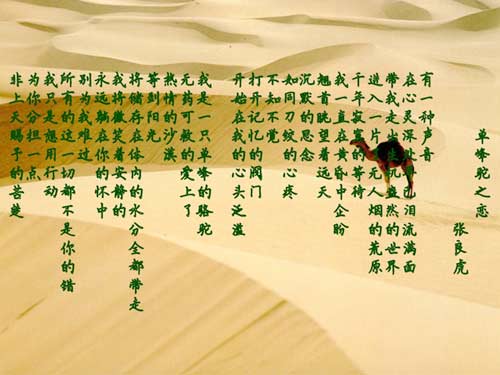 单峰驼之恋
张良虎
有一种声音
在心灵深处已泪流满面
带我走出盎然的世界
进入一片无人烟的荒原
千年寂寞的等待
我一直在黄昏中企盼
翘首眺望着远天
沉默的思念
如同刀绞的心疼
不知不觉
打开记忆的阀门
开始在我的心头泛滥
我是一只单峰的骆驼
无药可救的爱上了
热情的沙漠
等到阳光
将储存在体内的水分全都带走
我将微笑着安静的
永远躺在你的怀中
别为我难过
所有的这一切都不是你的错
我只是想用行动
为你分担一点
非上天赐予的苦楚